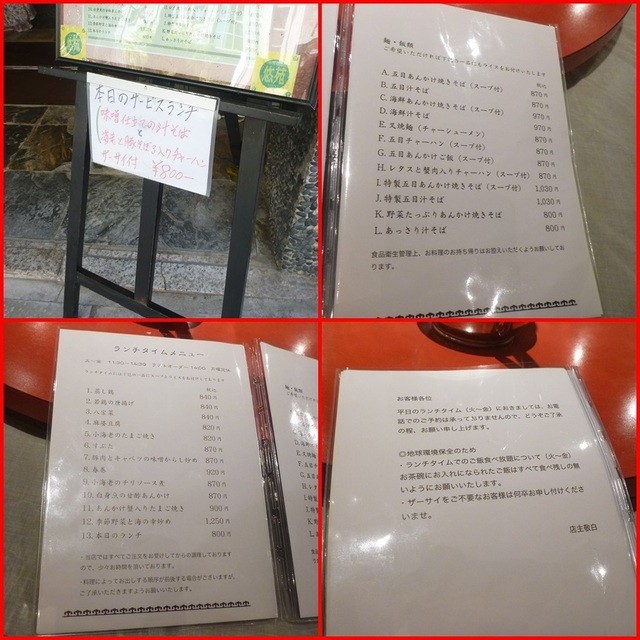 悠苑
本日のサービスランチ
味噌仕立ての汁そば
と
海老と豚そぼろ入りチャーハン
ザーサイ付 ¥800-
麺・飯類
税込
A. 五目あんかけ焼きそば（スープ付） 870円
B. 五目汁そば 870円
C. 海鮮あんかけ焼きそば（スープ付） 970円
D. 海鮮汁そば 970円
E. 叉焼麺（チャーシューメン） 870円
F. 五目チャーハン（スープ付） 870円
G. 五目あんかけご飯（スープ付） 870円
H. レタスと蟹肉入りチャーハン 870円
I. 特製五目あんかけ焼きそば（スープ付） 1,030円
J. 特製五目汁そば 1,030円
K. 野菜たっぷりあんかけ焼きそば 800円
L. あっさり汁そば 800円
食品衛生管理上、お料理のお持ち帰りはお控えいただくようお願いしてお
ります。
ランチタイムメニュー
税込
1. 蒸し鶏 840円
2. 若鶏の唐揚げ 840円
3. 八宝菜 840円
4. 麻婆豆腐 820円
5. 小海老のたまご焼き 820円
6. すぶた 870円
7. 豚肉とキャベツの味噌からし炒め 870円
8. 春巻 920円
9. 小海老のチリソース煮 870円
10. 白身魚の甘酢あんかけ 870円
11. あんかけ蟹入りたまご焼き 900円
12. 季節野菜と海の幸炒め 1,250円
13. 本日のランチ 800円
・当店ではすべてご注文をお受けしてからの調理しております
ので、少々お時間を頂いております。
・料理によってお出しする順序が前後する場合がございますが、
ご了承いただきますようお願いします。
お客様各位
平日のランチタイム（火〜金）におきましては、お電
話でのご予約は承っておりませんので、どうぞご了承
の程、お願い申し上げます。
◎地球環境保全のため
・ランチタイムでのご飯食べ放題について（火〜金）
お茶碗にお入れになられたご飯はすべて食べ残しの無
いようにお願いいたします。
・ザーサイをご不要なお客様は何卒お申し付けくださ
いませ。
店主敬白